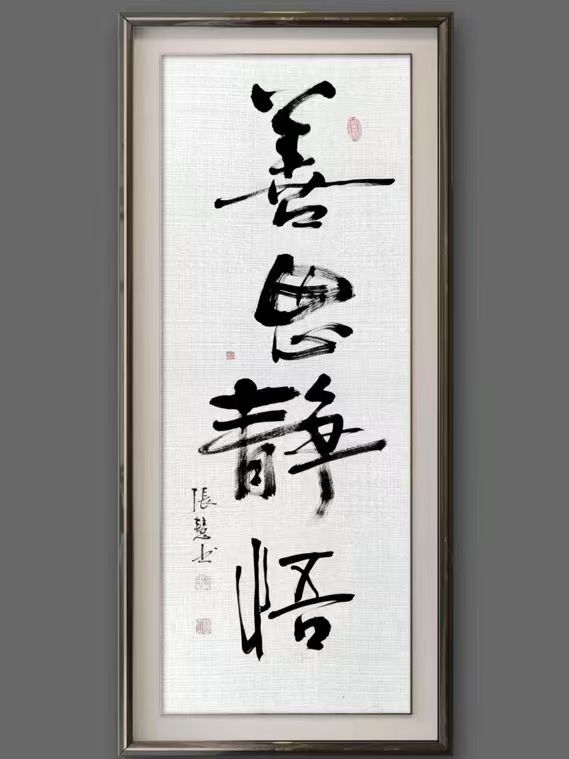 善思静悟
張慧书